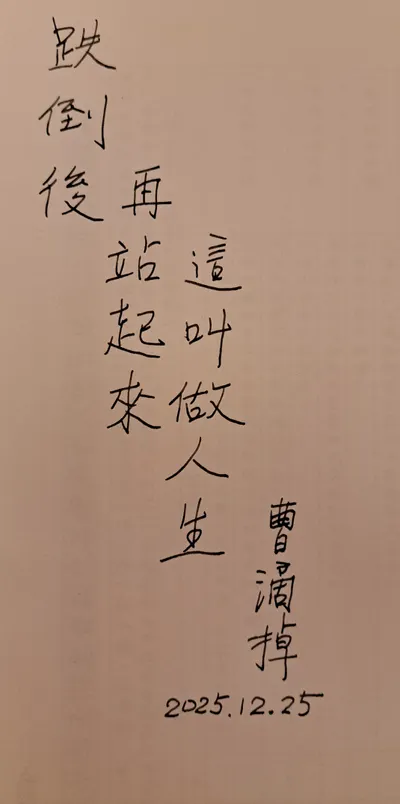 跌倒後
再站起來
這叫做人生
曹掉
2025.12.25